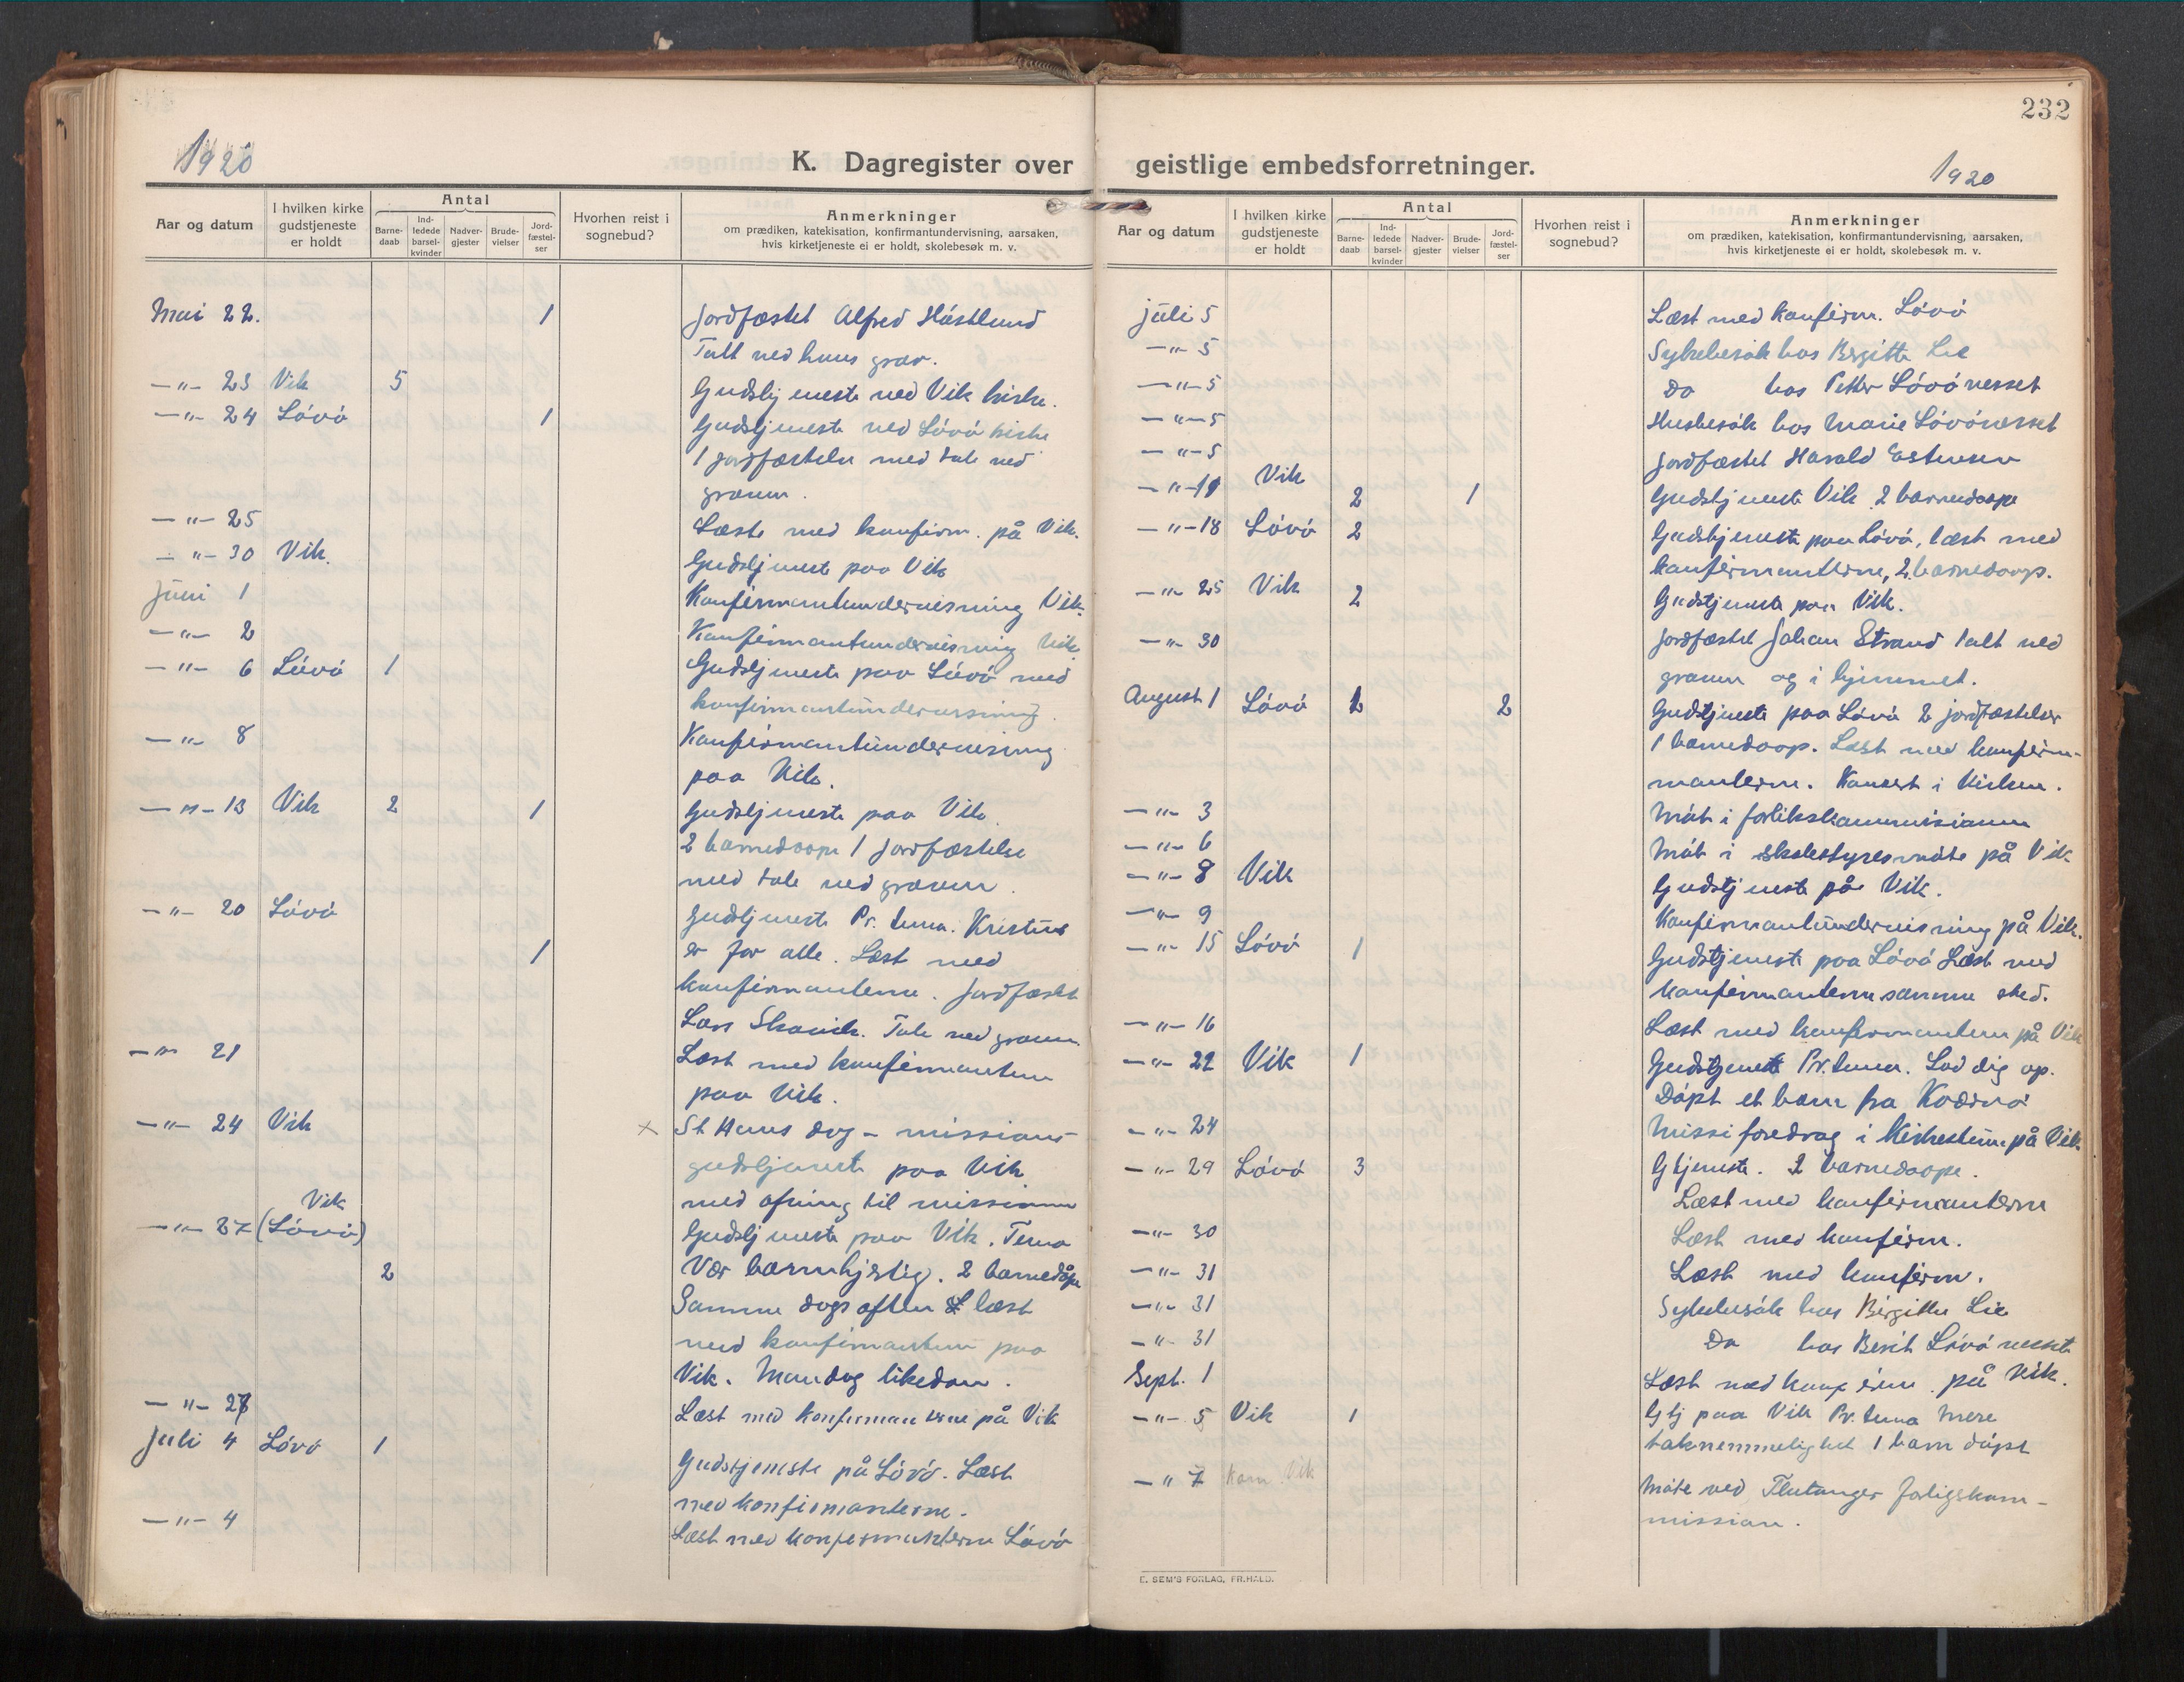 232
1920
K. Dagregister over geistlige embedsforretninger.
1920
Aar og datum
I hvilken kirke gudstjeneste er holdt
Antal
Barne-daab
Ind-ledede barsel-kvinder
Nadver-gjester
Brude-vielser
Jord-fæstel-ser
Hvorhen reist i sognebud?
Anmerkninger
om prædiken, katekisation, konfirmantundervisning, aarsaken,
hvis kirketjeneste ei er holdt, skolebesøk m. v.
Mai 22. 1 Jordfæstet Alfred Håstlund
Talt ved hans grav.
-"- 23 Vik 5 Gudstjeneste ved Vik kirke.
-"- 24 Lövö 1 Gudstjeneste ved Lövö kirke
1 jordfæstelse med tale ved
graven.
-"- 25 Læste med konfirm. på Vik.
-"- 30 Vik. Gudstjeneste paa Vik
Juni 1 Konfirmantundervisning Vik.
-"- 2 Konfirmantundervisning Vik
-"- 6 Lövö 1 Gudstjeneste paa Lövö med
konfirmantundervisning.
-"- 8 Konfirmantundervisning
paa Vik.
-"- 13 Vik 2 1 Gudstjeneste paa Vik.
2 barnedoope 1 jordfæstelse
med tale ved graven.
-"- 20 Lövö Gudstjeneste Pr. tema. Kristus
1 er for alle. Læst med
konfirmanterne. Jordfæstet
Lars Skavik. Tale ved graven
-"- 21 Læst med konfirmanterne
paa Vik.
-"- 24 Vik × St Hans dag - missions-
gudstjeneste paa Vik
med ofring til missionen
Vik
-"- 27 (Lövö) Gudstjeneste paa Vik. Tema
2 Vær barmhjertig. 2 barnedåpe
Samme dags aften læst
med konfirmanterne paa
Vik. Mandag likedan.
-"- 27 Læst med konfirmanterne på Vik
Juli 4 Lövö 1 Gudstjeneste på Lövö. Læst
med konfirmanterne.
-"- 4 Læst med konfirmanterne Lövö
Aar og datum
I hvilken kirke gudstjeneste er holdt
Antal
Barne-daab
Ind-ledede barsel-kvinder
Nadver-gjester
Brude-vielser
Jord-fæstel-ser
Hvorhen reist i sognebud?
Anmerkninger
om prædiken, katekisation, konfirmantundervisning, aarsaken,
hvis kirketjeneste ei er holdt, skolebesøk m. v.
Juli 5 Læst med konfirm. Lövö
-"- 5 Sykebesök hos Birgitte Lie
-"- 5 Do hos Petter Lövönesset
-"- 5 Husbesök hos Marie Lövönesset
-"- 5 Jordfæstet Harald Estensen
-"- 11 Vik 2 1 Gudstjeneste Vik 2 barnedoope
-"- 18 Lövö 2 Gudstjeneste paa Lövö, læst med
konfirmanterne, 2 barnedoop.
-"- 25 Vik 2 Gudstjeneste paa Vik.
-"- 30 Jordfæstet Johan Strand talt ved
graven og i hjemmet.
August 1 Lövö 1 2 Gudstjeneste paa Lövö 2 jordfæstelser
1 barnedoop. Læst med konfirm-
manterne. Konsert i kirken.
-"- 3 Möt i forlikskommissionen
-"- 6 Möt i skolestyresmöte på Vik
-"- 8 Vik Gudstjeneste på Vik.
-"- 9 Konfirmantundervisning på Vik.
-"- 15 Lövö 1 Gudstjeneste paa Lövö Læst med
konfirmanterne samme sted.
-"- 16 Læst med konfirmanterne på Vik
-"- 22 Vik 1 Gudstjeneste Pr. tema. Lad dig op.
Döpt et barn fra Kværnö
-"- 24 Missi foredrag i Kirkestuen på Vik
-"- 29 Lövö 3 Gtjeneste. 2 barnedoope.
Læst med konfirmanterne
-"- 30 Læst med konfirm.
-"- 31 Læst med konfirm.
-"- 31 Sykebesök hos Birgitte Lie
-"- 31 Do hos Berit Lövönesset
Sept. 1 Læst med konfirm. på Vik.
-"- 5 Vik 1 Gtj paa Vik Pr. tema Mere
taknemmelighet 1 barn döpt
-"- 7 Kom. Vik Möte ved forligskom-
mission.
E. SEM'S FORLAG, FR.HALD.